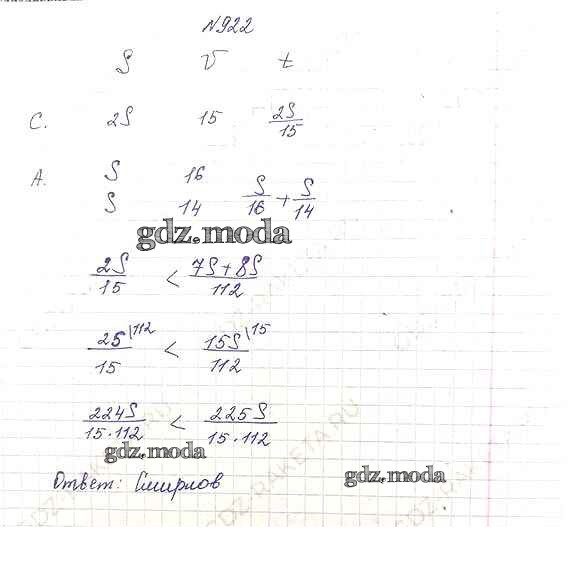 N922
S V t
С. 2S 15 2S/15
А. S 16
S 14 S/16 + S/14
gdz.moda
2S/15 < 7S+8S/112
2S\112/15 < 15S\15/112
224S/15·112 < 225S/15·112
gdz.moda
Ответ: Смирнов
gdz.moda